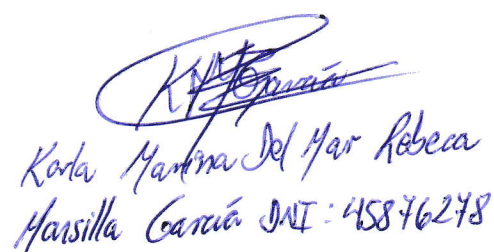 García
Karla Marina Del Mar Rebeca
Mansilla García DNI: 45876278